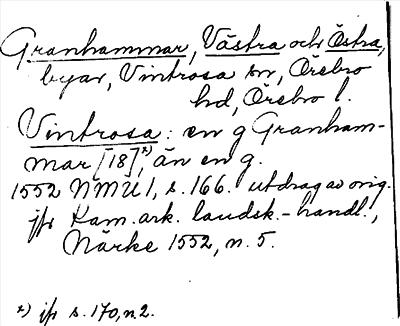 Granhammar, Västra och Östra,
byar, Vintrosa sn, Örebro
hd, Örebro l.
Vintrosa: en g Granham-
mar [18]*), än en g.
1552 NMU 1, s. 166. utdrag av orig.
jfr Kam. ark. landsk.-handl.,
Närke 1552, n. 5.
*) jfr s. 170, n. 2.